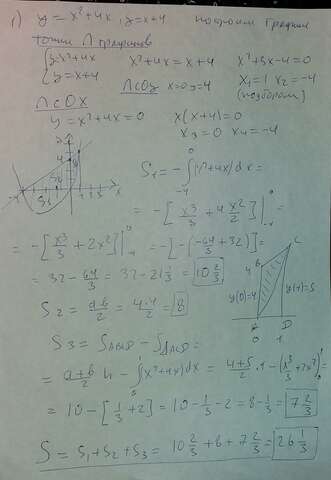 1) y = x² + 4x, y = x + 4 построим графики
точки ∩ графиков
{ y = x² + 4x x² + 4x = x + 4 x² + 3x - 4 = 0
{ y = x + 4 ∩ c Oy x = 0 y = 4 x₁ = 1 x₂ = -4
(подбором)
∩ c OX
y = x² + 4x = 0 x(x+4) = 0
x₃ = 0 x₄ = -4
S₁ = - ∫₋₄⁰ (x² + 4x) dx =
= - [x³/3 + 4 x²/2] |₋₄⁰ =
= - [x³/3 + 2x²] |₋₄⁰ = - [-(-64/3 + 32)] =
= 32 - 64/3 = 32 - 21 1/3 = 10 2/3
S₂ = ab/2 = 4·4/2 = 8
S₃ = S_ABCD - S_ACD =
= (a+b)/2 h - ∫₀¹ (x² + 4x) dx = (4+5)/2 · 1 - (x³/3 + 2x²) |₀¹ =
= 10 - [1/3 + 2] = 10 - 1/3 - 2 = 8 - 1/3 = 7 2/3
S = S₁ + S₂ + S₃ = 10 2/3 + 8 + 7 2/3 = 26 1/3